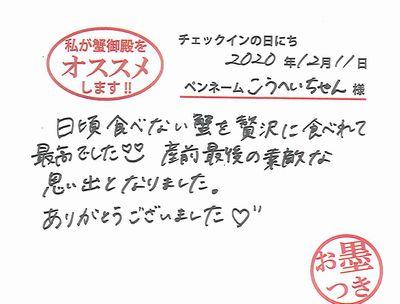 私が蟹御殿を
オススメ
します!!
チェックインの日にち
2020年12月11日
ペンネーム こうへいちゃん 様
日頃食べない蟹を贅沢に食べれて
最高でした♡♡ 産前最後の素敵な
思い出となりました。
ありがとうございました♡
お墨
つき